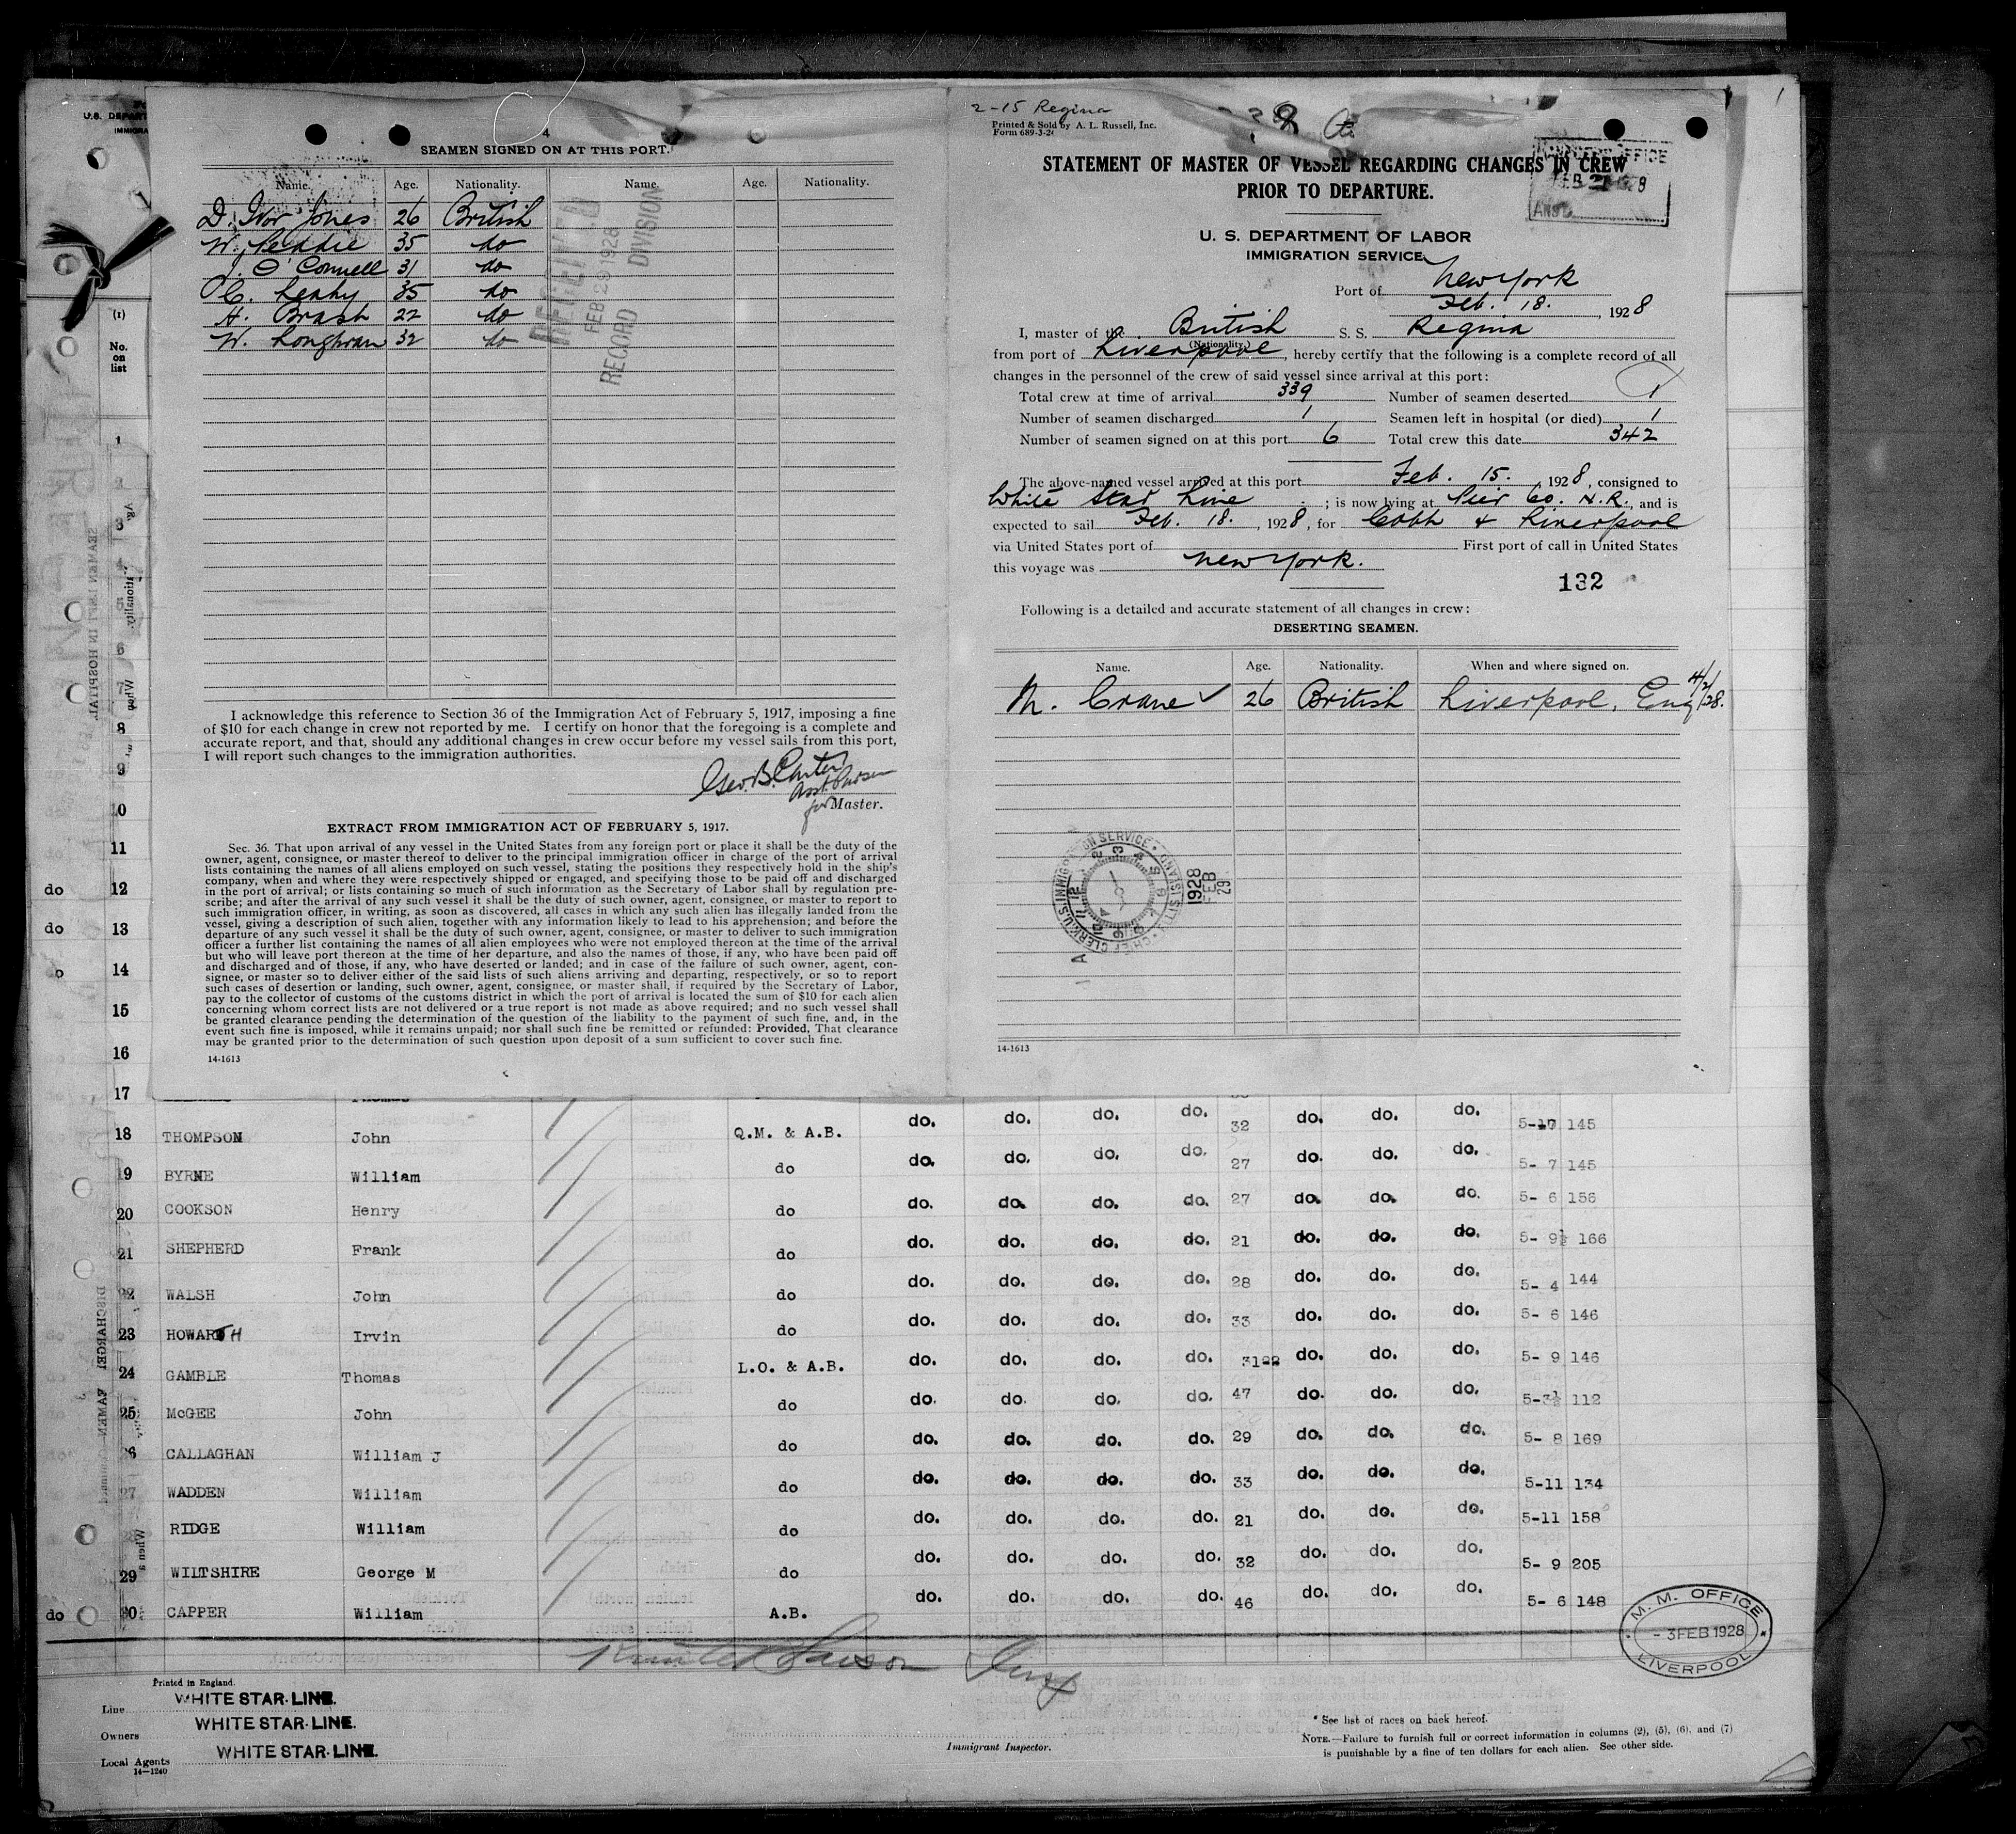 4
SEAMEN SIGNED ON AT THIS PORT.
Name. Age. Nationality. Name. Age. Nationality.
D. Ivor Jones 26 British
W. Peddie 35 do
J. O'Connell 31 do
C. Leahy 35 do
A. Brash 22 do
W. Loughran 32 do
RECEIVED
FEB 29 1928
RECORD DIVISION
I acknowledge this reference to Section 36 of the Immigration Act of February 5, 1917, imposing a fine
of $10 for each change in crew not reported by me. I certify on honor that the foregoing is a complete and
accurate report, and that, should any additional changes in crew occur before my vessel sails from this port,
I will report such changes to the immigration authorities.
Geo. B. Carter
Asst. Purser
for Master.
EXTRACT FROM IMMIGRATION ACT OF FEBRUARY 5, 1917.
Sec. 36. That upon arrival of any vessel in the United States from any foreign port or place it shall be the duty of the
owner, agent, consignee, or master thereof to deliver to the principal immigration officer in charge of the port of arrival
lists containing the names of all aliens employed on such vessel, stating the positions they respectively hold in the ship's
company, when and where they were respectively shipped or engaged, and specifying those to be paid off and discharged
in the port of arrival; or lists containing so much of such information as the Secretary of Labor shall by regulation pre-
scribe; and after the arrival of any such vessel it shall be the duty of such owner, agent, consignee, or master to report to
such immigration officer, in writing, as soon as discovered, all cases in which any such alien has illegally landed from the
vessel, giving a description of such alien, together with any information likely to lead to his apprehension; and before the
departure of any such vessel it shall be the duty of such owner, agent, consignee, or master to deliver to such immigration
officer a further list containing the names of all alien employees who were not employed thereon at the time of the arrival
but who will leave port thereon at the time of her departure, and also the names of those, if any, who have been paid off
and discharged and of those, if any, who have deserted or landed; and in case of the failure of such owner, agent, con-
signee, or master so to deliver either of the said lists of such aliens arriving and departing, respectively, or so to report
such cases of desertion or landing, such owner, agent, consignee, or master shall, if required by the Secretary of Labor,
pay to the collector of customs of the customs district in which the port of arrival is located the sum of $10 for each alien
concerning whom correct lists are not delivered or a true report is not made as above required; and no such vessel shall
be granted clearance pending the determination of the question of the liability to the payment of such fine, and, in the
event such fine is imposed, while it remains unpaid; nor shall such fine be remitted or refunded: Provided, That clearance
may be granted prior to the determination of such question upon deposit of a sum sufficient to cover such fine.
14-1613
2-15 Regina
Printed & Sold by A. L. Russell, Inc.
Form 689-3-24
STATEMENT OF MASTER OF VESSEL REGARDING CHANGES IN CREW
PRIOR TO DEPARTURE.
U. S. DEPARTMENT OF LABOR
IMMIGRATION SERVICE
Port of New York
Feb. 18. , 1928
I, master of the British S. S. Regina
(Nationality.)
from port of Liverpool, hereby certify that the following is a complete record of all
changes in the personnel of the crew of said vessel since arrival at this port:
Total crew at time of arrival 339 Number of seamen deserted 1
Number of seamen discharged 1 Seamen left in hospital (or died) 1
Number of seamen signed on at this port 6 Total crew this date 342
The above-named vessel arrived at this port Feb. 15. , 1928, consigned to
White Star Line ; is now lying at Pier 60. N.R., and is
expected to sail Feb. 18. , 1928, for Cobh & Liverpool
via United States port of First port of call in United States
this voyage was New York.
132
Following is a detailed and accurate statement of all changes in crew:
DESERTING SEAMEN.
Name. Age. Nationality. When and where signed on.
M. Crane ✓ 26 British Liverpool, Eng 4/2/28.
1928 FEB 29
14-1613
U.S. DEPART
IMMIGRA
(1)
No.
on
list
1
2
3
4
5
6
7
8
9
10
11
do 12
do 13
14
15
16
17
18 THOMPSON John Q.M. & A.B. do. do. do. do. 32 do. do. do. 5-10 145
19 BYRNE William do do. do. do. do. 27 do. do. do. 5- 7 145
20 COOKSON Henry do do. do. do. do. 27 do. do. do. 5- 6 156
21 SHEPHERD Frank do do. do. do. do. 21 do. do. do. 5- 9½ 166
22 WALSH John do do. do. do. do. 28 do. do. do. 5- 4 144
23 HOWARTH Irvin do do. do. do. do. 33 do. do. do. 5- 6 146
24 GAMBLE Thomas L.O. & A.B. do. do. do. do. 31 do. do. do. 5- 9 146
25 McGEE John do do. do. do. do. 47 do. do. do. 5-3½ 112
26 CALLAGHAN William J do do. do. do. do. 29 do. do. do. 5- 8 169
27 WADDEN William do do. do. do. do. 33 do. do. do. 5-11 134
RIDGE William do do. do. do. do. 21 do. do. do. 5-11 158
29 WILTSHIRE George M do do. do. do. do. 32 do. do. do. 5- 9 205
do 30 CAPPER William A.B. do. do. do. do. 46 do. do. do. 5- 6 148
M. M. OFFICE
- 3 FEB 1928
LIVERPOOL
Printed in England.
Line WHITE STAR LINE.
Owners WHITE STAR LINE.
Local Agents WHITE STAR LINE.
14-1240
Immigrant Inspector.
* See list of races on back hereof.
NOTE.—Failure to furnish full or correct information in columns (2), (5), (6), and (7)
is punishable by a fine of ten dollars for each alien. See other side.